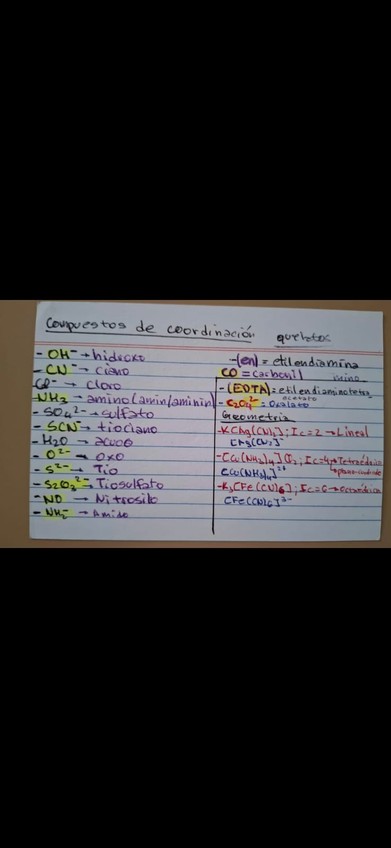 Compuestos de coordinación
- OH⁻ → hidroxo
- CN⁻ → ciano
Cl⁻ → cloro
NH3 → amino (amin/aminin)
- SO4²⁻ → sulfato
- SCN⁻ → tiociano
- H2O → acuo
- O²⁻ → oxo
- S²⁻ → Tio
- S2O3²⁻ → Tiosulfato
- NO → Nitrosilo
- NH2⁻ → Amido
quelatos
- (en) = etilendiamina
CO = carbonil
- (EDTA) = etilendiaminotetra
acetato
- C2O4²⁻ = oxalato
Geometría
- K[Ag(CN)2]; Ic = 2 → Lineal
[Ag(CN)2]⁻
- [Cu(NH3)4]Cl2; Ic = 4 → Tetraédrica
→ plano-cuadrada
[Cu(NH3)4]²⁺
- K3[Fe(CN)6]; Ic = 6 → Octaédrica
[Fe(CN)6]³⁻